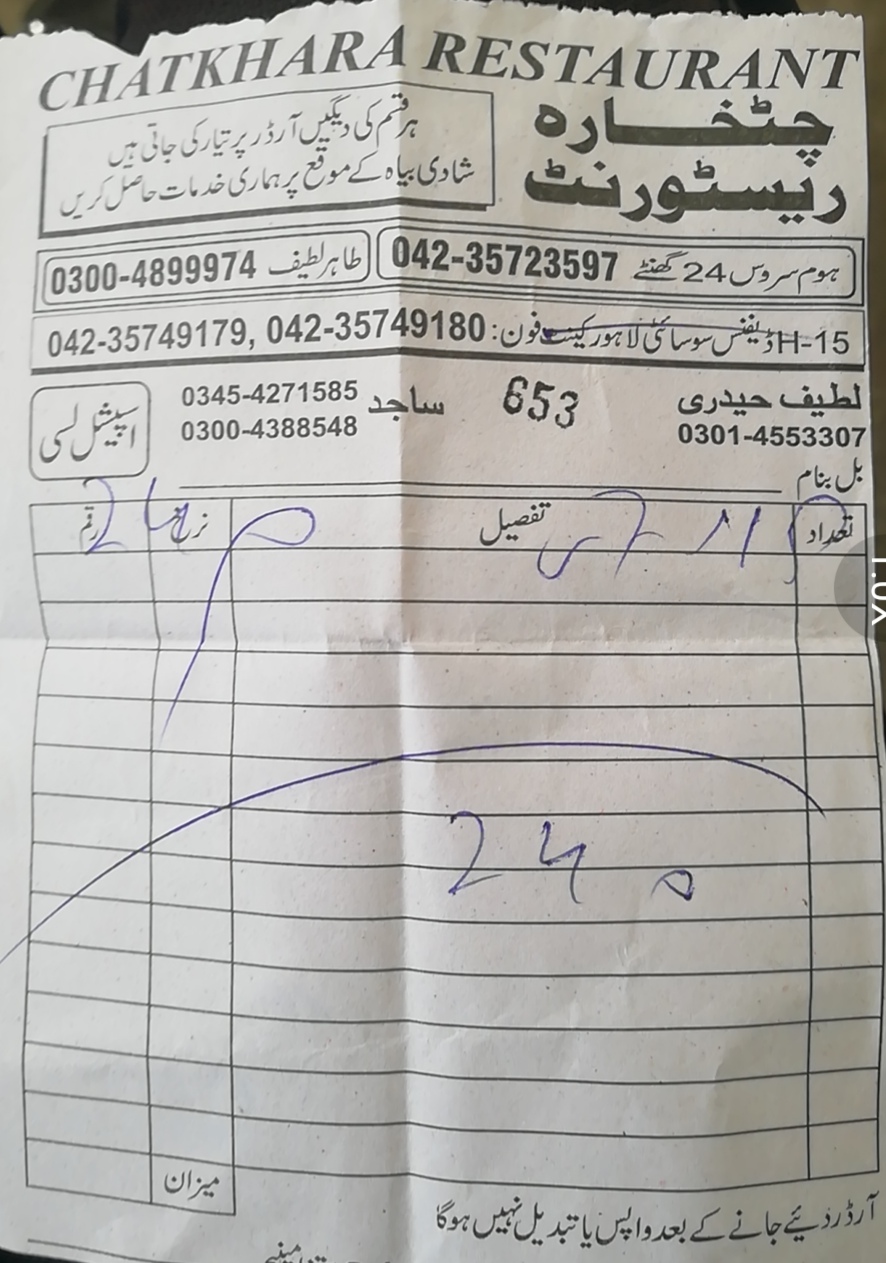 CHATKHARA RESTAURANT
چٹخارہ
ریسٹورنٹ
ہر قسم کی دیگیں آرڈر پر تیار کی جاتی ہیں
شادی بیاہ کے موقع پر ہماری خدمات حاصل کریں
ہوم سروس 24 گھنٹے 042-35723597
طاہر لطیف 0300-4899974
H-15 ڈیفنس سوسائٹی لاہور کینٹ فون: 042-35749179, 042-35749180
لطیف حیدری 653 ساجد 0345-4271585
0301-4553307 0300-4388548
اسپیشل لسی
بل بنام
تعداد تفصیل نرخ رقم
240
240
میزان
آرڈر دئیے جانے کے بعد واپس یا تبدیل نہیں ہوگا